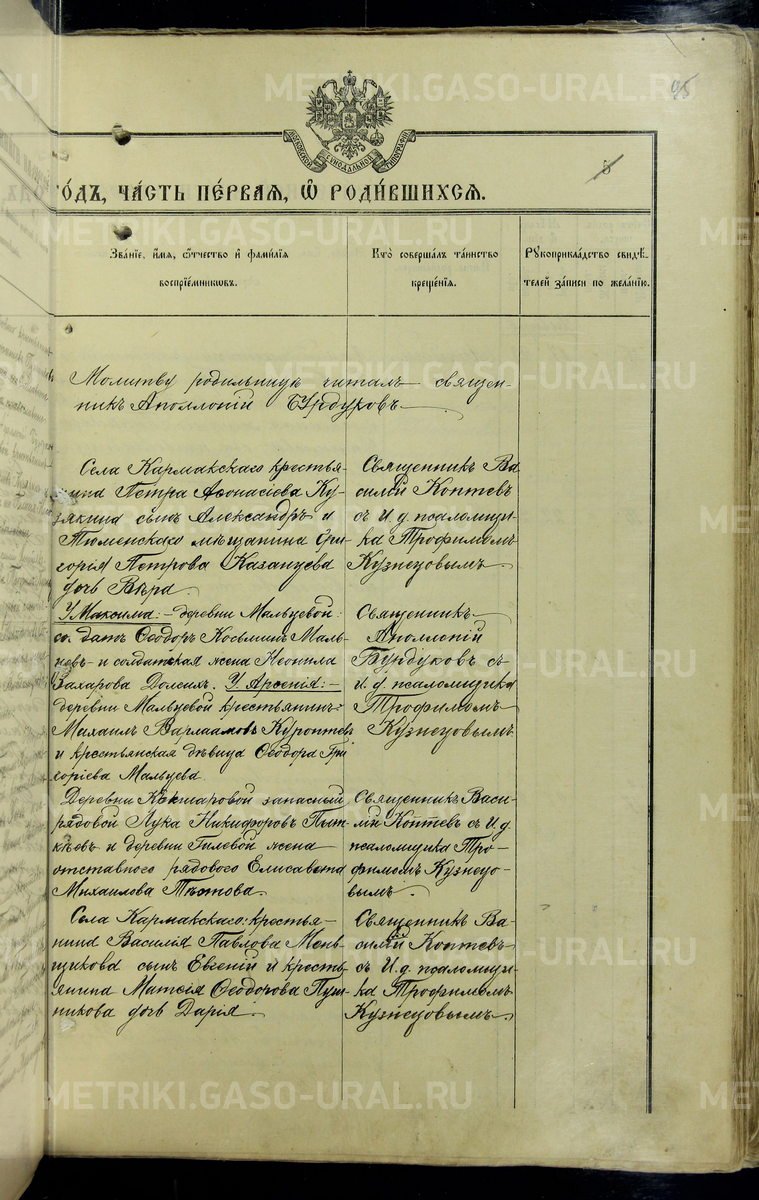 METRIKI.GASO-URAL.RU
95
МОСКОВСКОЙ СѴНОДАЛЬНОЙ ТИПОГРАФІИ
го́дъ, ча́сть пе́рваѧ, ѡ҆ роди́вшихсѧ.
Зва́нїе, и҆́мѧ, ѻ҆́тчество и҆ фами́лїѧ
воспрїе́мникѡвъ.
Кто̀ соверша́лъ та́инство
креще́нїѧ.
Рꙋкоприкла́дство свидѣ́-
телей за́писи по жела́нїю.
Молитву родильницѣ читалъ священ-
никъ Аполлоній Бурдуковъ
Села Кармакскаго крестья-
нина Петра Аѳонасіева Ку-
зякина сынъ Александръ и
Тюменскаго мѣщанина Гри-
горія Петрова Казанцева
дочь Вѣра.
Священникъ Ва
силій Коптевъ
съ И. д. псаломщи-
ка Трофимомъ
Кузнецовымъ
У Максима: - деревни Мальцевой:
солдатъ Ѳеодоръ Косьминъ Маль-
цевъ и солдатская жена Неонила
Захарова Долсихъ. У Арсенія: -
деревни Мальцевой крестьянинъ
Михаилъ Варлаамовъ Куроптевъ
и крестьянская дѣвица Ѳеодора Гри
горіева Мальцева.
Священникъ
Аполлоній
Бурдуковъ съ
И. д. псаломщика
Трофимомъ
Кузнецовымъ
Деревни запасный
рядовой Лука Никифоровъ Пыт-
кѣевъ и деревни Гилевой жена
отставного рядового Елисавета
Михаилова Тѣстова.
Священникъ Васи-
лій Коптевъ съ И. д.
псаломщика Тро-
фимомъ Кузнецо-
вымъ.
Села Кармакскаго: крестья-
нина Василія Павлова Мень
щикова сынъ Евгеній и кресть
янина Матѳія Ѳеодорова Пуш-
никова дочь Дарія.
Священникъ Ва-
силій Коптевъ
съ И. д. псаломщи-
ка Трофимомъ
Кузнецовымъ.
METRIKI.GASO-URAL.RU